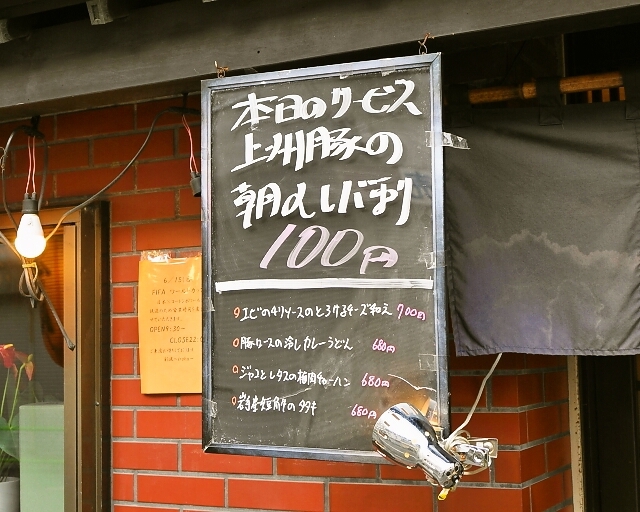 本日のサービス
上州豚の
朝〆レバ刺
100円
エビのチリソースのとろけるチーズ和え 700円
豚ロースの冷しカレーうどん 680円
ジャコとレタスの梅肉チャーハン 680円
岩手産短角牛のタタキ 680円
FIFA ワールドカップ
OPEN